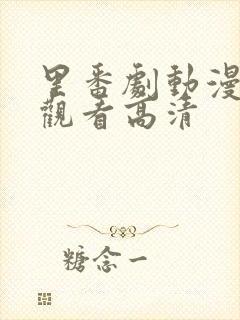 里番劇動漫
觀看高清
糖念一